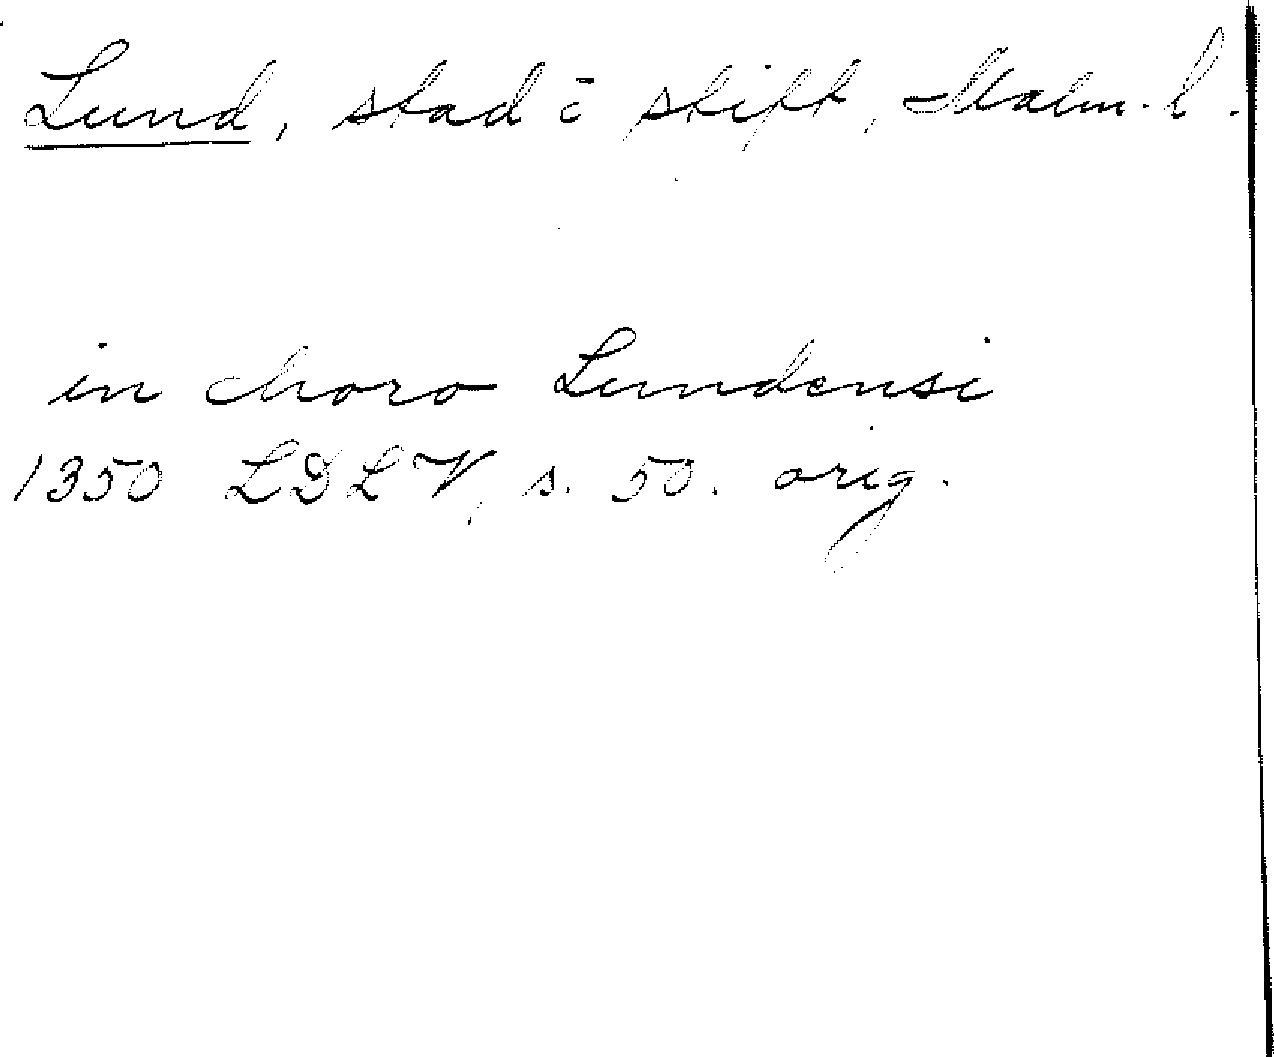 Lund, stad o stift, Malm. l.
in choro Lundensi
1350 LDLV, s. 50. orig.